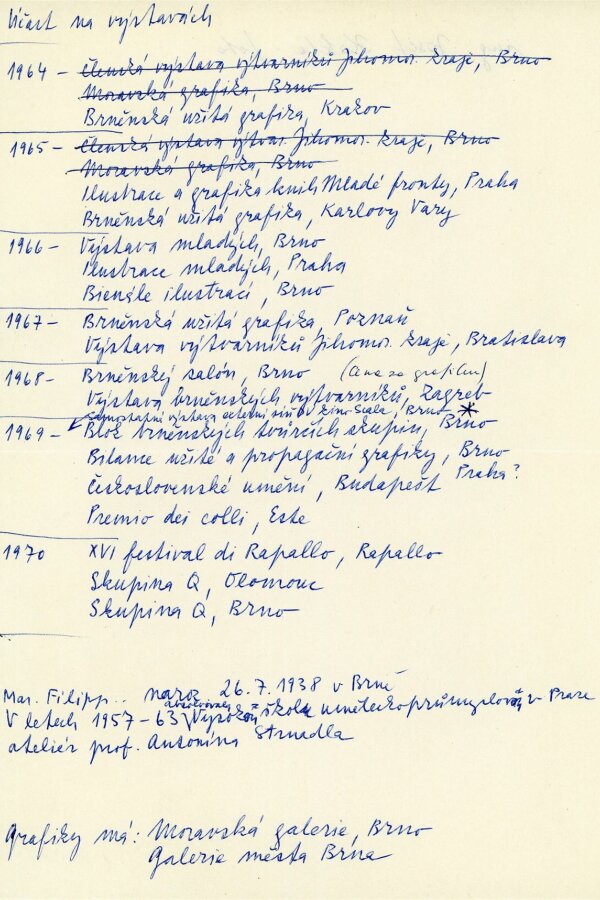 Účast na výstavách
1964 - Členská výstava výtvarníků Jihomor. kraje, Brno
Moravská grafika, Brno
Brněnská užitá grafika, Krakov
1965 - Členská výstava výtvar. Jihomor. kraje, Brno
Moravská grafika, Brno
Ilustrace a grafika knih Mladé fronty, Praha
Brněnská užitá grafika, Karlovy Vary
1966 - Výstava mladých, Brno
Ilustrace mladých, Praha
Bienále ilustrací, Brno
1967 - Brněnská užitá grafika, Poznaň
Výstava výtvarníků Jihomor. kraje, Bratislava
1968 - Brněnskej salón, Brno (Cena za grafiku)
Výstava brněnských výtvarníků, Zagreb
samostatní výstava ve kino Scala, Brno *
1969 - Blok brněnských tvůrčích skupin, Brno
Bilance užité a propagační grafiky, Brno
Praha?
Československé umění, Budapešť
Premio dei colli, Este
1970 XVI festival di Rapallo, Rapallo
Skupina Q, Olomouc
Skupina Q, Brno
Mar. Filipp.. naroz. 26.7.1938 v Brně
absolvovala
V letech 1957-63 Vysokou školu uměleckoprůmyslovou v Praze
ateliér prof. Antonína Strnadla
Grafiky má: Moravská galerie, Brno
Galerie města Brna